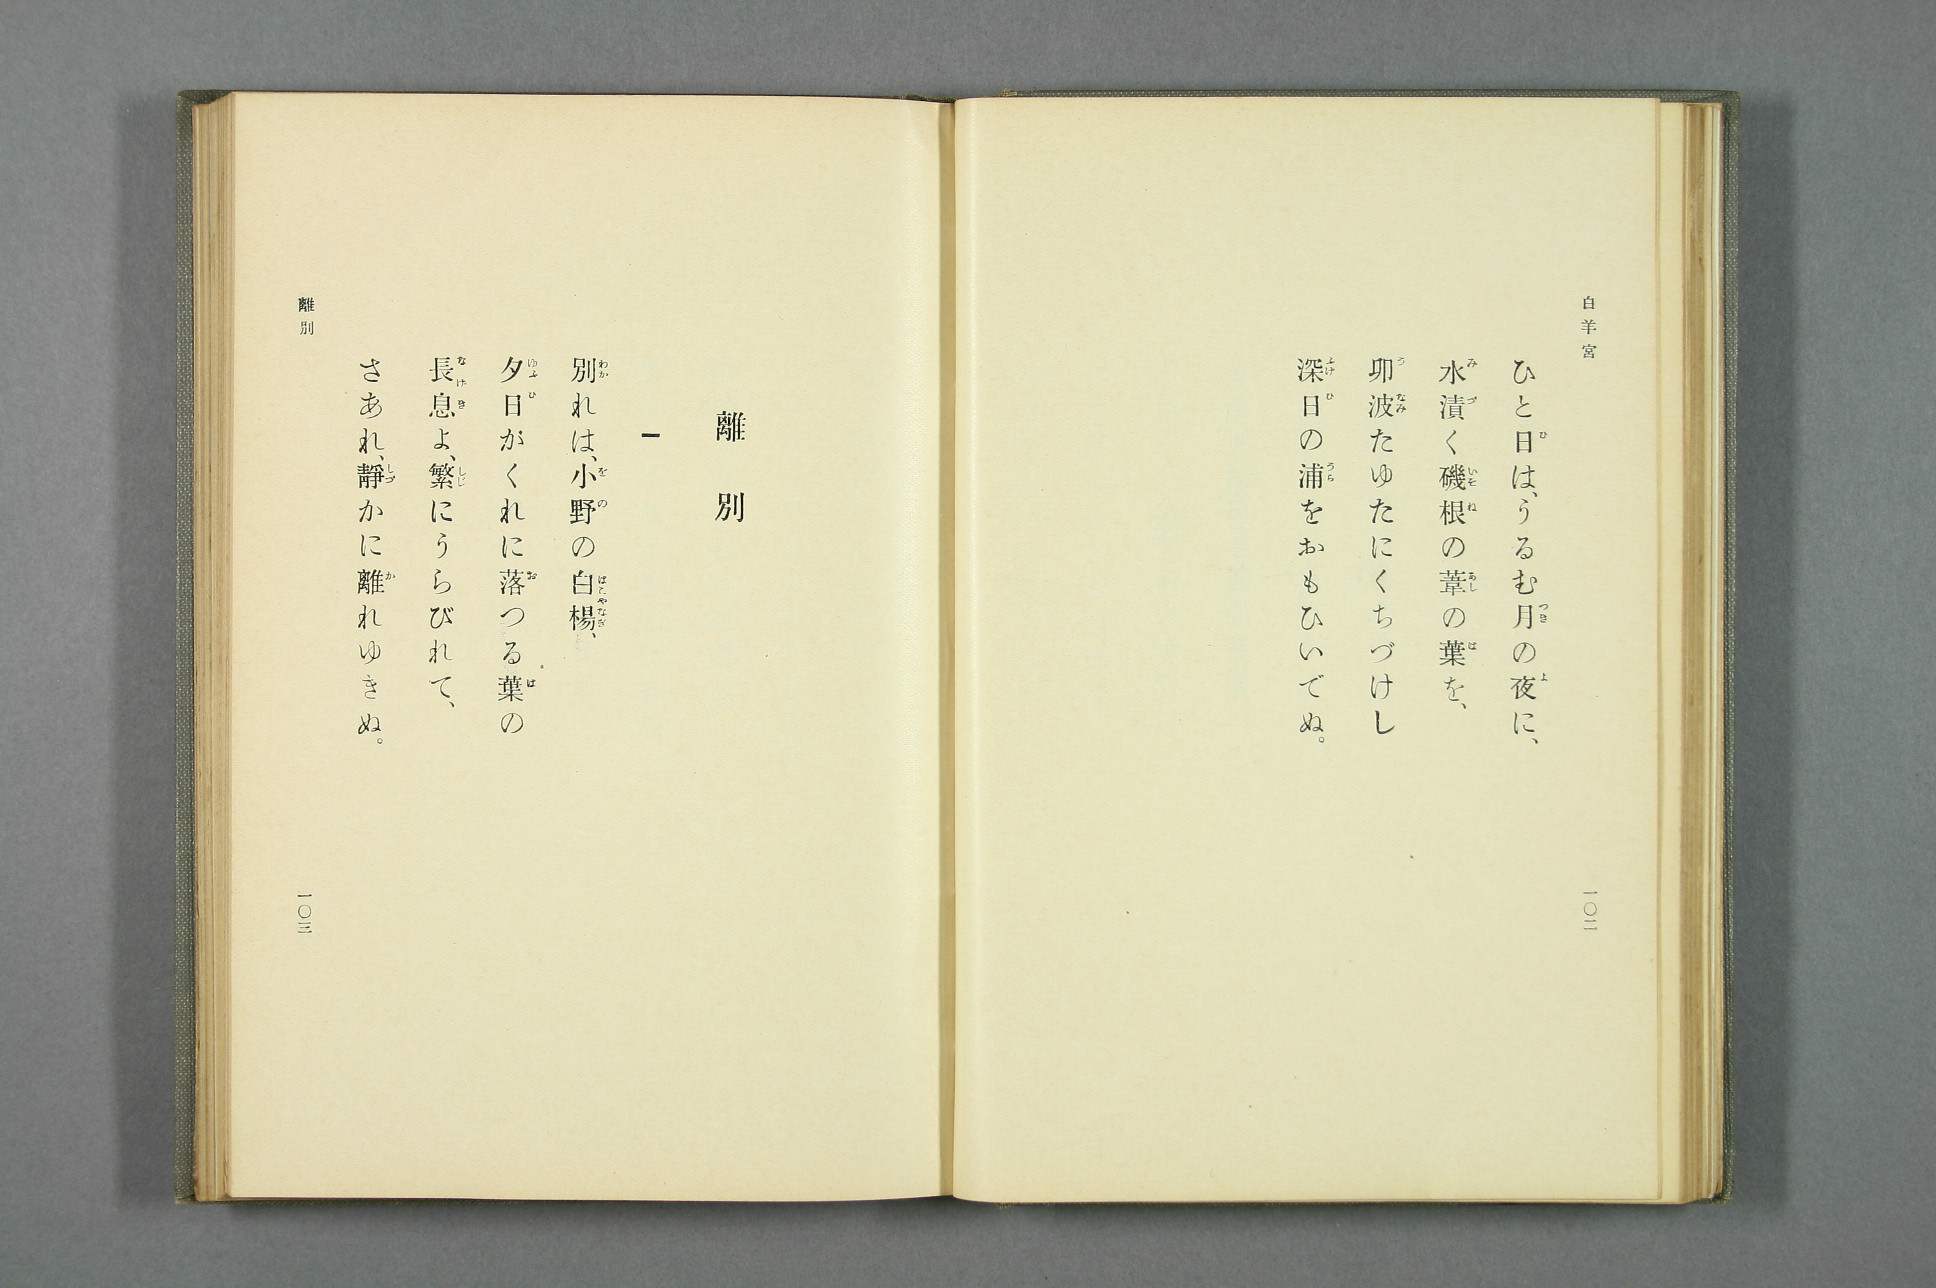 白羊宮
ひと日は、うるむ月の夜に、
水漬く磯根の葦の葉を、
卯波たゆたにくちづけし
深日の浦をおもひいでぬ。
一〇二
離別
一
別れは、小野の白楊、
夕日がくれに落つる葉の
長息よ、繁にうらびれて、
さあれ、靜かに離れゆきぬ。
離別
一〇三